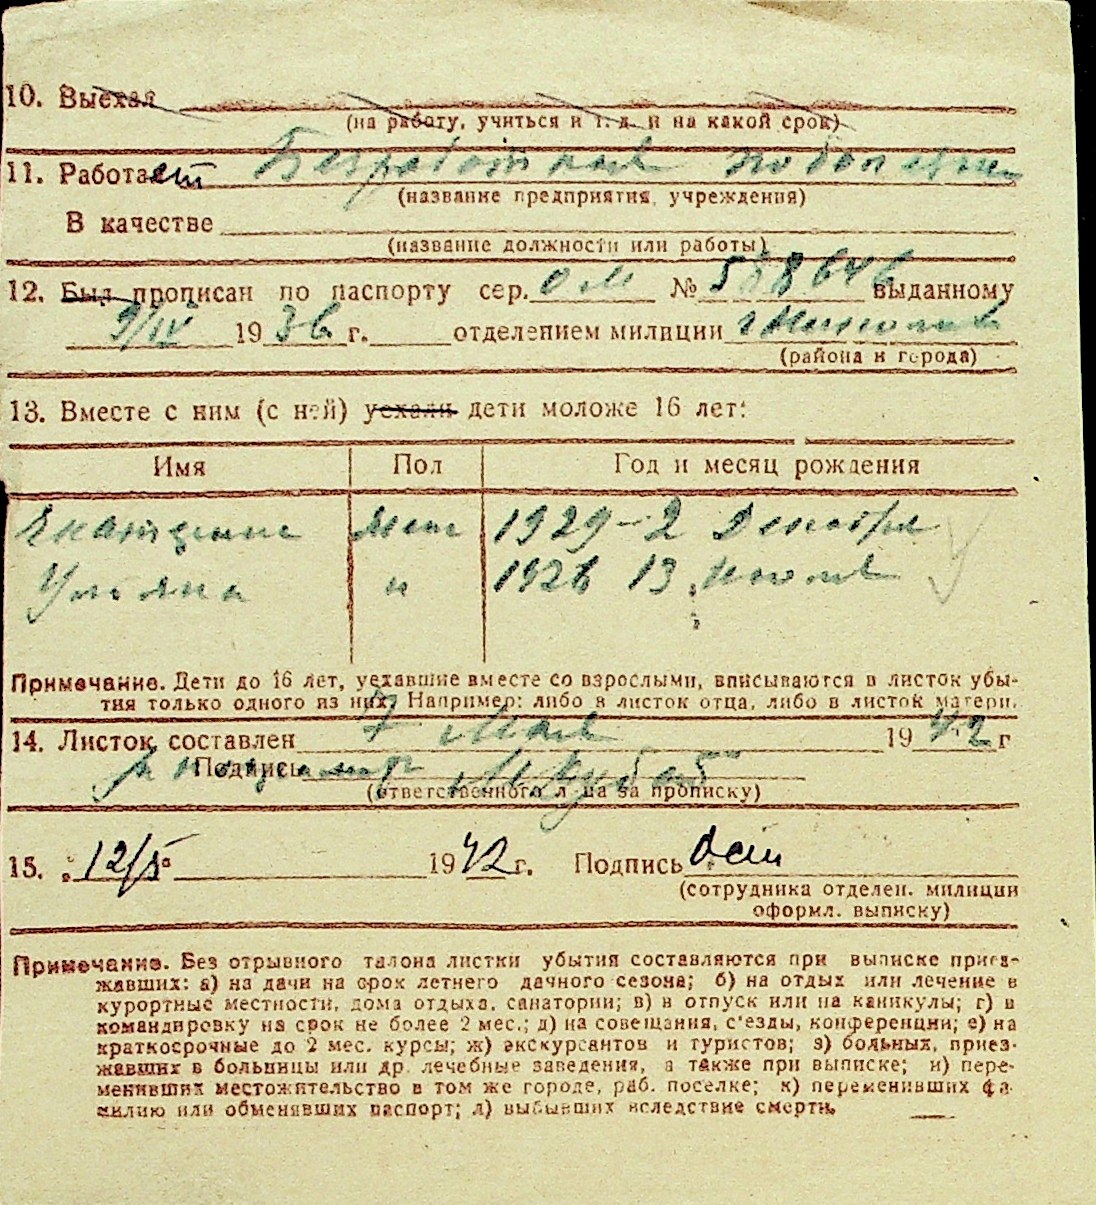 10. Выехал
(на работу, учиться и т. д. и на какой срок)
11. Работает Безработная
(название предприятия, учреждения)
В качестве
(название должности или работы)
12. Был прописан по паспорту сер. ОМ № 588646 выданному
9/IV 1936 г. отделением милиции г Николаев
(района и города)
13. Вместе с ним (с ней) уехали дети моложе 16 лет:
Имя Пол Год и месяц рождения
Екатерина жен 1929-2 Декабря
Ульяна и 1926 13 Июля
Примечание. Дети до 16 лет, уехавшие вместе со взрослыми, вписываются в листок убы-
тия только одного из них. Например: либо в листок отца, либо в листок матери.
14. Листок составлен 7 Мая 1942 г
Подпись
(ответственного лица за прописку)
15. 12/5 1942 г. Подпись
(сотрудника отделен. милиции
оформл. выписку)
Примечание. Без отрывного талона листки убытия составляются при выписке приез-
жавших: а) на дачи на срок летнего дачного сезона; б) на отдых или лечение в
курортные местности, дома отдыха, санатории; в) в отпуск или на каникулы; г) в
командировку на срок не более 2 мес.; д) на совещания, с'езды, конференции; е) на
краткосрочные до 2 мес. курсы; ж) экскурсантов и туристов; з) больных, приез-
жавших в больницы или др. лечебные заведения, а также при выписке; и) пере-
менивших местожительство в том же городе, раб. поселке; к) переменивших фа-
милию или обменявших паспорт; л) выбывших вследствие смерти.